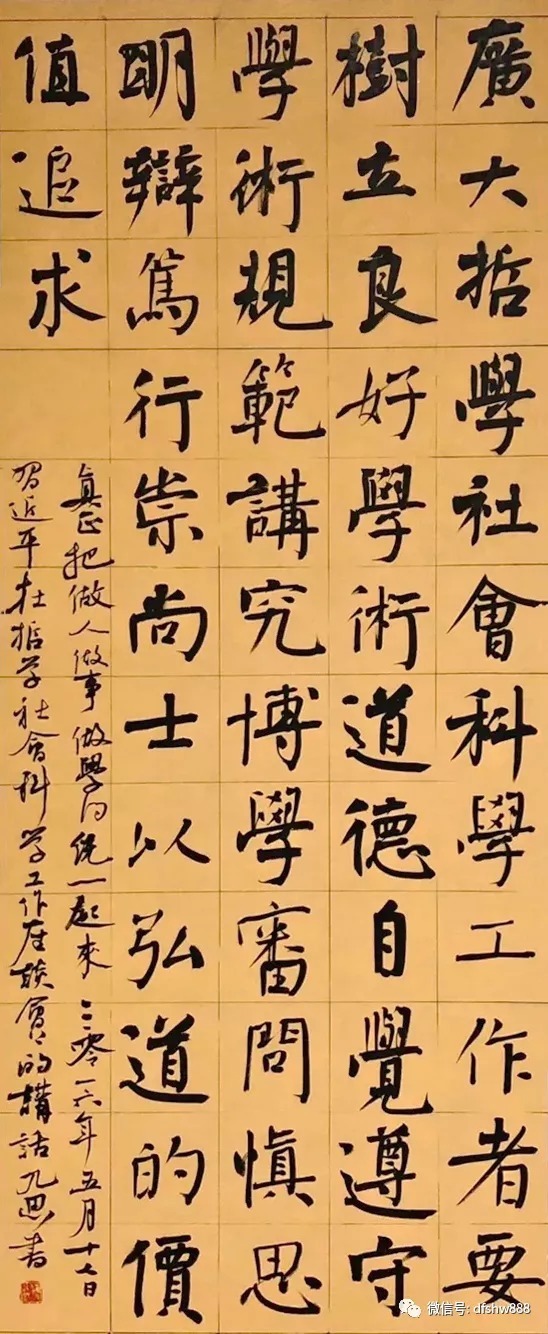 廣大哲學社會科學工作者要
樹立良好學術道德自覺遵守
學術規範講究博學審問慎思
明辯篤行崇尚士以弘道的價
值追求
真正把做人做事做學问统一起來 二零一六年五月十七日
習近平在哲学社會科学工作座談會的講話
微信号: dfshw888